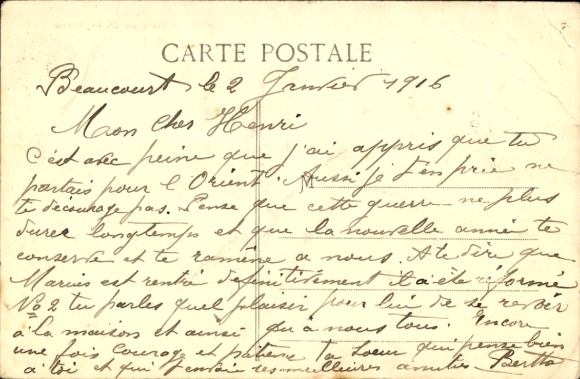 CARTE POSTALE
Beaucourt le 2 Janvier 1916
Mon cher Henri
C'est avec peine que j'ai appris que tu
partais pour l'Orient. Aussi je t'en prie ne
M
te décourage pas. Pense que cette guerre ne plus
durer longtemps et que la nouvelle année te
conserve et te ramène a nous. A te dire que
Marius est rentré definitivement il a été réformé
No 2 tu parles quel plaisir pour lui de se revoir
à la maison et ainsi qu'à nous tous. Encore
une fois courage et patience ta soeur qui pense bien
à toi et qui t'envoie ses meilleures amitiés Bertha